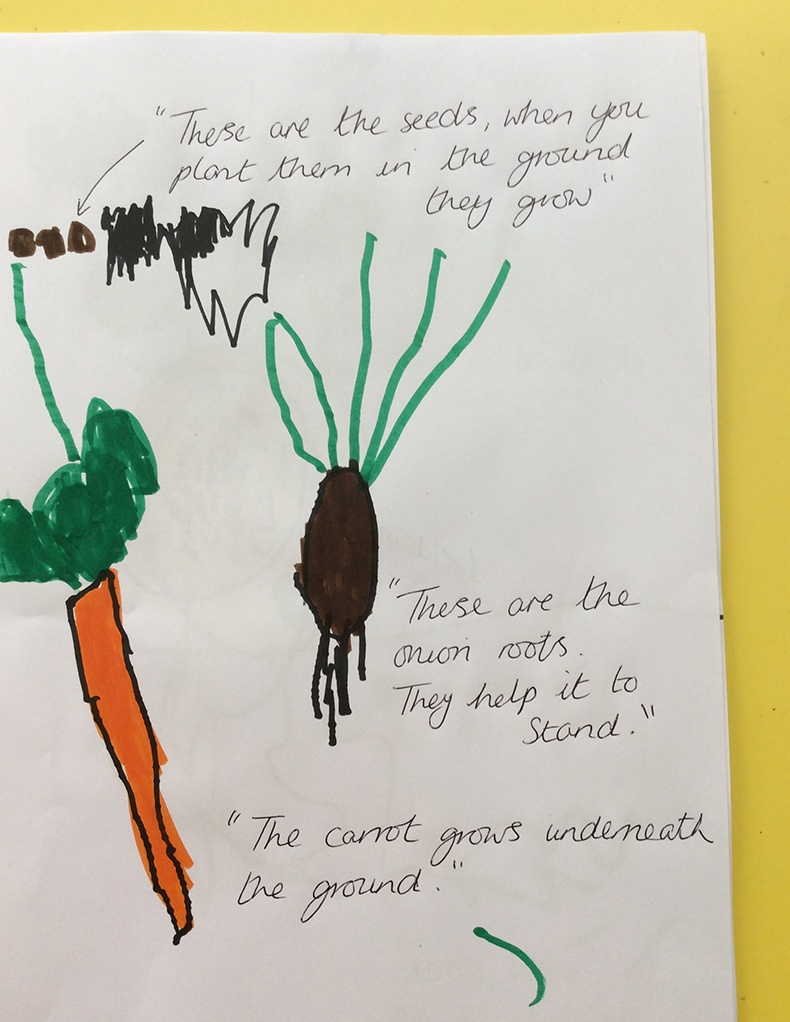 "These are the seeds, when you
plant them in the ground
they grow"
"These are the
onion roots.
They help it to
Stand."
"The carrot grows underneath
the ground."